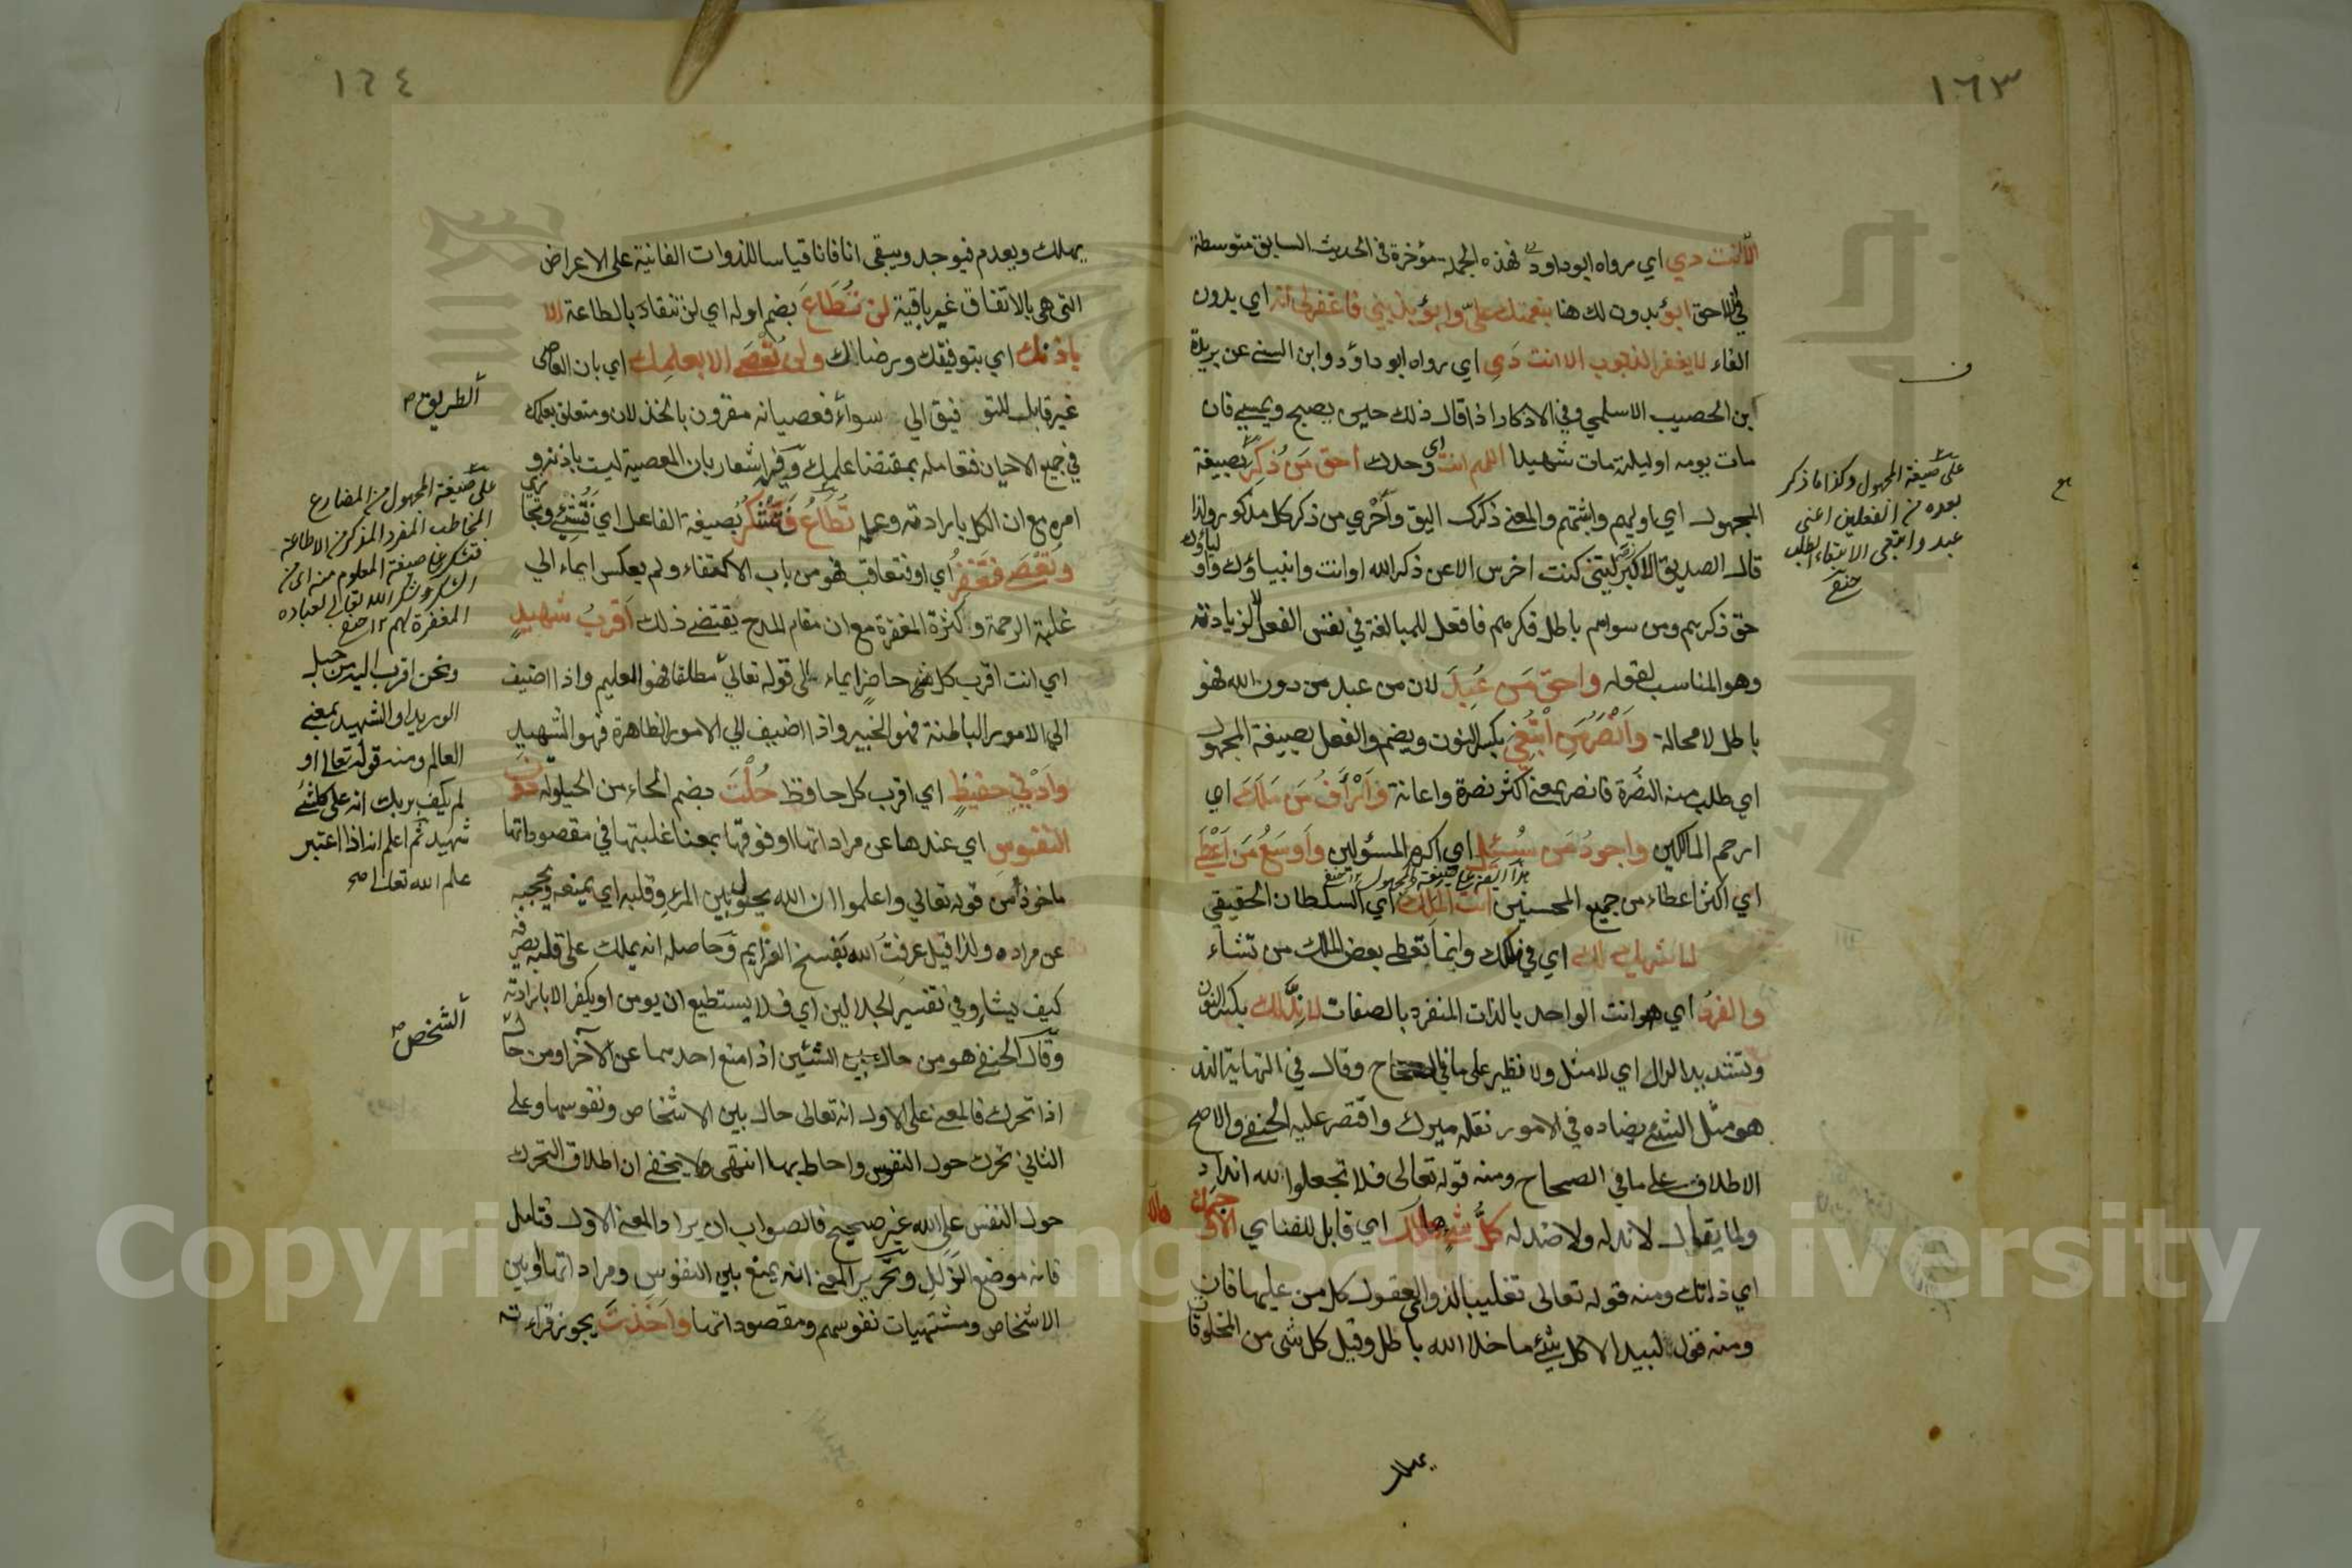 ١٦٣
الا انت د ي اي رواه ابو داود فهذه الجملة مؤخرة في الحديث السابق متوسطة
في اللاحق ابوء بدون لك هنا بنعمتك علي وابوء بذنبي فاغفر لي انه اي بدون
الفاء لا يغفر الذنوب الا انت د ي اي رواه ابو داود وابن السني عن بريدة
ابن الحصيب الاسلمي وفي الاذكار اذا قال ذلك حين يصبح ويمسي فان
مات يومه او ليلته مات شهيدا اللهم انت اي وحدك احق من ذكر بصيغة
المجهول اي اوليهم واثبتهم والمعنى ذكرك اليق واحرى من ذكر كل مذكور ولذا
قال الصديق الاكبر ليتني كنت اخرس الا عن ذكر الله او انت وانبياؤك واولياؤك
حق ذكرهم ومن سواهم باطل ذكرهم فافعل للمبالغة في نفس الفعل لا لزيادته
وهو المناسب لقوله واحق من عبد لان من عبد من دون الله فهو
باطل لا محالة وانصر من ابتغي بكسر النون ويضم والفعل بصيغة المجهول
اي طلب منه النصرة فانصر بمعنى اكثر نصرة واعانة وارأف من ملك اي
ارحم المالكين واجود من سئل اي اكرم المسؤلين واوسع من اعطى
اي اكثر اعطاء من جميع المحسنين انت الملك اي السلطان الحقيقي
لا شريك لك اي في ملكك وانما تعطي بعض الملك من تشاء
والفرد اي هو انت الواحد بالذات المنفرد بالصفات لا ند لك بكسر النون
وتشديد الدال اي لا مثل ولا نظير على ما في الصحاح وقال في النهاية الند
هو مثل الشيء يضاده في الامور نقله ميرك واقتصر عليه الحنفي والاصح
الاطلاق على ما في الصحاح ومنه قوله تعالى فلا تجعلوا لله اندادا
ولما يقال لا ند له ولا ضد له كل شيء هالك اي قابل للفناء الا وجهك
اي ذاتك ومنه قوله تعالى تغليبا لذوي العقول كل من عليها فان
ومنه قول لبيد الا كل شيء ما خلا الله باطل وقيل كل شي من المخلوقات
يهلك
على صيغة المجهول وكذا ما ذكر
بعده من الفعلين اعني
عبد وابتغي الابتغاء الطلب
حنفي
هذا ايضا على صيغة المجهول ١٢ حنفي
١٦٤
يهلك ويعدم فيوجد ويبقى انا فانا قياسا للذوات الفانية على الاعراض
التي هي بالاتفاق غير باقية لن تطاع بضم اوله اي لن تنقاد بالطاعة الا
باذنك اي بتوفيقك ورضائك ولن تعصى الا بعلمك اي بان العاصي
غير قابل للتوفيق الي سواء فعصيانه مقرون بالخذلان ومتعلق بعلمك
في جميع الاحيان فتعامله بمقتضا علمك وفيه اشعار بان المعصية ليست باذنه و
امره مع ان الكل بارادته وعلمه تطاع فتشكر بصيغة الفاعل اي فتثني وتجازي
وتعصى فتغفر اي او فتعاقب فهو من باب الاكتفاء ولم يعكس ايماء الي
غلبة الرحمة وكثرة المغفرة مع ان مقام المدح يقتضي ذلك اقرب شهيد
اي انت اقرب كل شي حاضر ايماء الى قوله تعالى مطلقا فهو العليم واذا اضيف
الي الامور الباطنة فهو الخبير واذا اضيف الي الامور الظاهرة فهو الشهيد
وادنى حفيظ اي اقرب كل حافظ حلت بضم الحاء من الحيلولة دون
النفوس اي عندها عن مراداتها او فوقها بمعنا غلبتها في مقصوداتها
ماخوذ من قوله تعالى واعلموا ان الله يحول بين المرء وقلبه اي يمنعه ويحجبه
عن مراده ولذا قيل عرفت الله بفسخ العزايم وحاصله انه يملك على قلبه يصرفه
كيف يشاء وفي تفسير الجلالين اي فلا يستطيع ان يومن او يكفر الا بارادته
وقال الحنفي هو من حال بين الشيئين اذا منع احدهما عن الآخر او من حال
اذا تحرك فالمعنى على الاول انه تعالى حال بين الاشخاص ونفوسها وعلى
الثاني تحرك حول النفوس واحاط بها انتهى ولا يخفى ان اطلاق التحرك
حول النفس على الله غير صحيح فالصواب ان يراد المعنى الاول فتامل
فانه موضع الزلل وتحرير المعنى انه يمنع بين النفوس ومراداتها او بين
الاشخاص ومشتهيات نفوسهم ومقصوداتها واخذت يجوز قراءته
الطريق
على صيغة المجهول من المضارع
المخاطب المفرد المذكر من الاطاعة
فتشكر على صيغة المعلوم منه اي من
الشكر وشكر الله تعالى لعباده
المغفرة لهم ١٢ حنفي
ونحن اقرب اليه من حبل
الوريد او الشهيد بمعنى
العالم ومنه قوله تعالى او
لم يكف بربك انه على كل شيء
شهيد ثم اعلم انه اذا اعتبر
علم الله تعالى صح
الشخص
Copyright © King Saud University